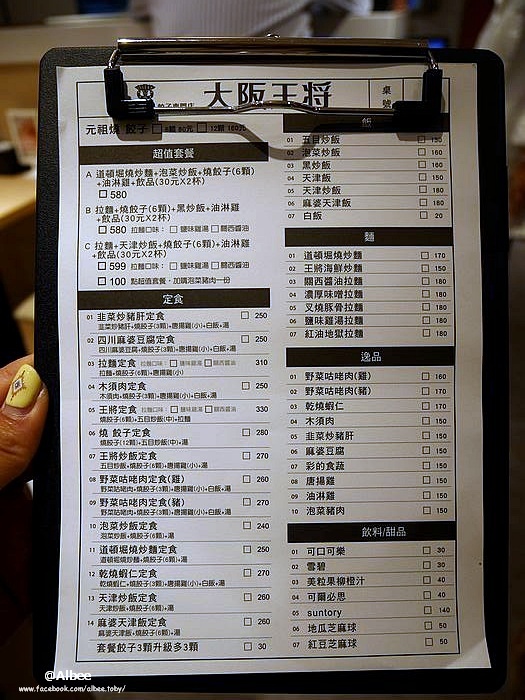 大阪王将
餃子專門店
桌號
元祖燒 餃子 □ 6顆 80元 □ 12顆 160元
超值套餐
A 道頓堀燒炒麵+泡菜炒飯+燒餃子(6顆)
+油淋雞+飲品(30元X2杯)
□ 580
B 拉麵+燒餃子(6顆)+黑炒飯+油淋雞
+飲品(30元X2杯)
□ 580 拉麵口味: □ 鹽味雞湯 □ 關西醬油
C 拉麵+天津炒飯+燒餃子(6顆)+油淋雞
+飲品(30元X2杯)
□ 599 拉麵口味: □ 鹽味雞湯 □ 關西醬油
□ 100 點超值套餐,加購泡菜豬肉一份
定食
01 韭菜炒豬肝定食 □ 250
韭菜炒豬肝+燒餃子(3顆)+唐揚雞(小)+白飯+湯
02 四川麻婆豆腐定食 □ 250
四川麻婆豆腐+燒餃子(3顆)+唐揚雞(小)+白飯+湯
03 拉麵定食 拉麵口味: □ 鹽味雞湯 □ 關西醬油 310
拉麵+燒餃子(6顆)+唐揚雞(小)
04 木須肉定食 □ 250
木須肉+燒餃子(3顆)+唐揚雞(小)+白飯+湯
05 王將定食 拉麵口味: □ 鹽味雞湯 □ 關西醬油 330
拉麵+燒餃子(6顆)+五目炒飯(中)
06 燒 餃子定食 □ 280
燒餃子(12顆)+五目炒飯(中)+湯
07 王將炒飯定食 □ 270
五目炒飯+燒餃子(6顆)+唐揚雞(小)+湯
08 野菜咕咾肉定食(雞) □ 260
野菜咕咾肉+燒餃子(3顆)+唐揚雞(小)+白飯+湯
09 野菜咕咾肉定食(豬) □ 270
野菜咕咾肉+燒餃子(3顆)+唐揚雞(小)+白飯+湯
10 泡菜炒飯定食 □ 240
泡菜炒飯+燒餃子(6顆)+湯
11 道頓堀燒炒麵定食 □ 250
道頓堀燒炒麵+燒餃子(6顆)+湯
12 乾燒蝦仁定食 □ 270
乾燒蝦仁+燒餃子(3顆)+唐揚雞(小)+白飯+湯
13 天津炒飯定食 □ 260
天津炒飯+燒餃子(6顆)+湯
14 麻婆天津飯定食 □ 260
麻婆天津飯+燒餃子(6顆)+湯
套餐餃子3顆升級多3顆 □ 30
飯
01 五目炒飯 □ 130
02 泡菜炒飯 □ 150
03 黑炒飯 □ 160
04 天津飯 □ 150
05 天津炒飯 □ 180
06 麻婆天津飯 □ 180
07 白飯 □ 20
麵
01 道頓堀燒炒麵 □ 170
02 王將海鮮炒麵 □ 150
03 關西醬油拉麵 □ 180
04 濃厚味噌拉麵 □ 180
05 叉燒豚骨拉麵 □ 180
06 鹽味雞湯拉麵 □ 180
07 紅油地獄拉麵 □ 180
逸品
01 野菜咕咾肉(雞) □ 160
02 野菜咕咾肉(豬) □ 170
03 乾燒蝦仁 □ 170
04 木須肉 □ 150
05 韭菜炒豬肝 □ 150
06 麻婆豆腐 □ 150
07 彩的食蔬 □ 150
08 唐揚雞 □ 150
09 油淋雞 □ 150
10 泡菜豬肉 □ 150
飲料/甜品
01 可口可樂 □ 30
02 雪碧 □ 30
03 美粒果柳橙汁 □ 40
04 可爾必思 □ 40
05 suntory □ 140
06 地瓜芝麻球 □ 50
07 紅豆芝麻球 □ 50
@Albee
www.facebook.com/albee.toby/